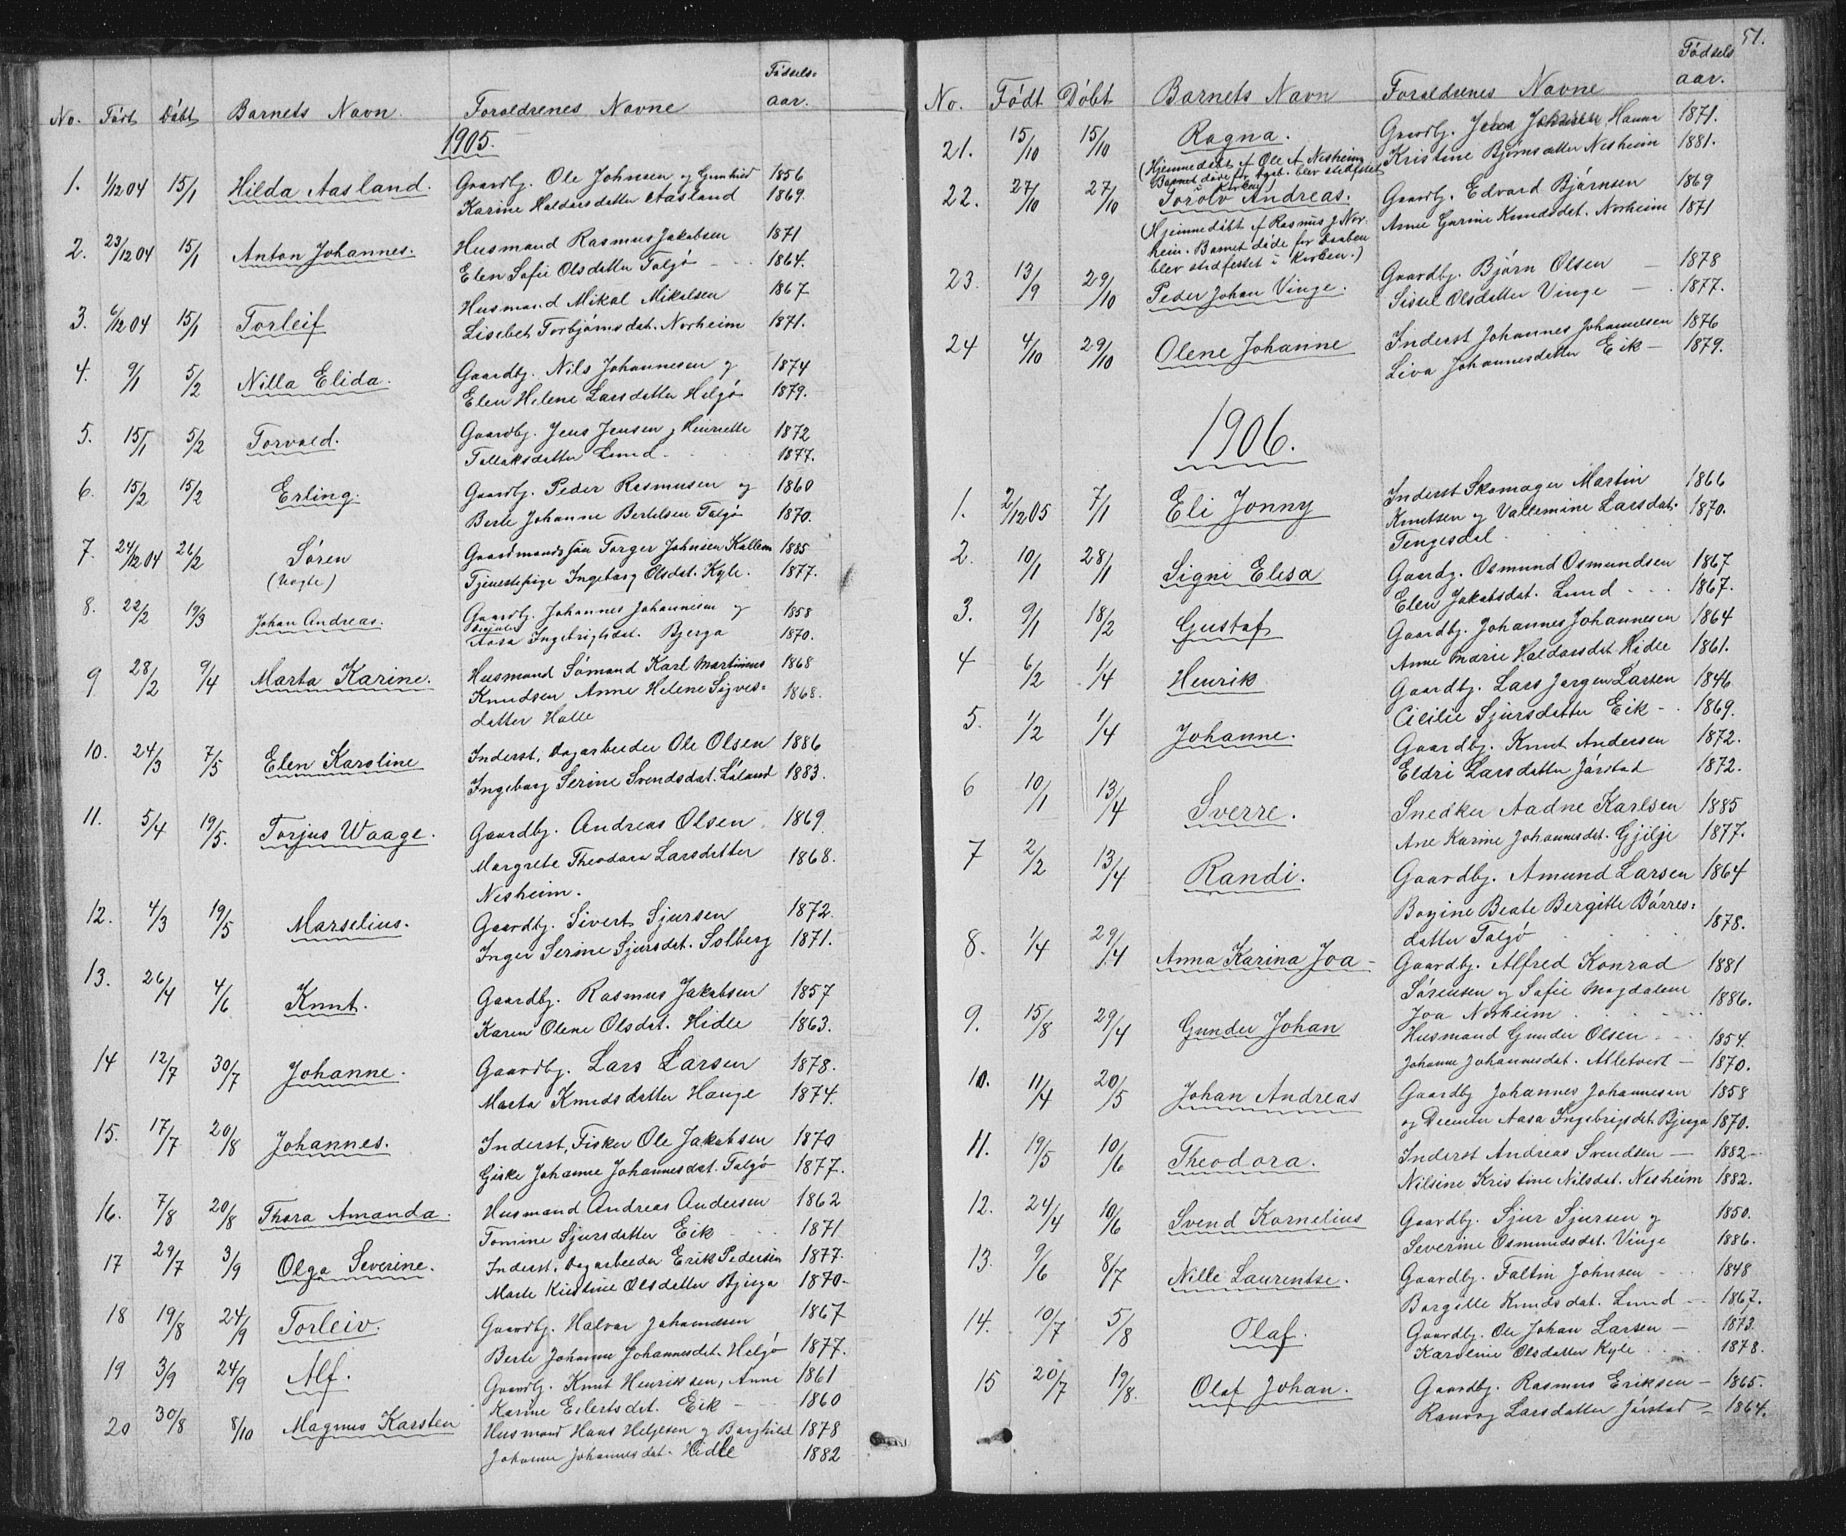 No. Født Døbt Barnets Navn. Forældrenes Navne Fødsels-
aar.
1905.
1. 1/12 04 15/1 Hilda Aasland. Gaardbr. Ole Johnsen og Gunhild 1856
Karine Haldorsdatter Aasland 1869.
2. 23/12 04 15/1 Anton Johannes. Husmand Rasmus Jakobsen 1871
Elen Sofie Olsdatter Talgø 1864.
3. 6/12 04 15/1 Torleif Husmand Mikal Mikalsen 1867
Lisebet Torbjørnsdat. Norheim 1871.
4. 9/1 5/2 Nilla Elida. Gaardbr. Nils Johannesen og 1874
Elen Helene Larsdatter Helgø 1879.
5. 15/1 5/2 Torvald. Gaardbr. Jens Jensen og Henriette 1872
Tallaksdatter Lund 1877.
6. 15/2 15/2 Erling. Gaardbr. Peder Rasmusen og 1860
Berte Johanne Bertelsen Talgø 1870.
7. 24/12 04 26/2 Søren Gaardmandssøn Torger Johnsen Kallem 1885
(uægte) Tjenestepige Ingeborg Olsdat. Kyle. 1877.
8. 22/2 19/3 Johan Andreas. Gaardbr. Johannes Johannesen og 1858
Aasa Ingebrigtsdat. Bjerga 1870.
9 28/2 9/4 Marta Karine. Husmand Sømand Karl Martinius 1868
Knudsen Anne Helene Sigves- 1868.
datter Halle
10. 24/3 7/5 Elen Karoline Inderst, Dagarbeider Ole Olsen 1886
Ingeborg Serine Svendsdat. Laland 1883.
11. 5/4 19/5. Torjus Waage. Gaardbr. Andreas Olsen 1869
Margrete Theodora Larsdatter 1868.
Nesheim.
12. 4/3 19/5 Marselius. Gaardbr. Sivert Sjursen 1872.
Inger Serine Sjursdat. Solberg 1871.
13. 26/4 4/6 Knut. Gaardbr. Rasmus Jakobsen 1857
Karen Olene Olsdat. Hidle 1863.
14 12/7 30/7 Johanne. Gaardbr. Lars Larsen 1878.
Marta Knudsdatter Hauge 1874.
15. 17/7 20/8 Johannes. Inderst, Fisker Ole Jakobsen 1870
Giske Johanne Johannesdat. Talgø 1877.
16. 7/8 20/8 Thora Amanda. Husmand Andreas Andersen 1862
Tomine Sjursdatter Eik 1871
17 29/7 3/9 Olga Severine. Inderst, Dagarbeider Erik Pedersen 1877.
Marte Kristine Olsdatter Bjerga 1870.
18 19/8 24/9 Torleiv. Gaardbr. Halvar Johannesen 1867
Berte Johanne Johannesdat. Helgø 1877.
19 3/9 24/9 Alf. Gaardbr. Knut Henriksen, Anne 1861
Karine Eilertsdet. Eik 1860
20 30/8 8/10 Magnus Karsten Husmand Hans Helgesen og Borghild 1878
Johanne Johannesdat. Hidle 1882
51.
No. Født Døbt Barnets Navn Forældrenes Navne Fødsels
aar.
21. 15/10 15/10 Ragna. Gaardbr. Jens Johansen Hanna 1871.
(Hjemmedøbt af Ole A. Nesheim Kristine Bjørnsdatter Nesheim 1881.
Barnet døde før daab. blev stadfæstet
i Kirken)
22. 27/10 27/10 Torolv Andreas. Gaardbr. Edvard Bjørnsen 1869
(Hjemmedøbt af Rasmus J. Nor- Anne Gurine Knudsdet. Norheim 1871
heim. Barnet døde før daaben
blev stadfestet i Kirken.)
23. 13/9 29/10 Peder Johan Vinge. Gaardbr. Bjørn Olsen 1878
Sissel Olsdatter Vinge 1877.
24 4/10 29/10 Olene Johanne Inderst Johannes Johannesen 1876
Liva Johannesdatter Eik 1879.
1906.
1. 2/12 05 7/1 Eli Jonny Inderst Skomager Martin 1866
Knutsen og Vallemine Larsdat. 1870.
Tengesdal.
2. 10/1 28/1 Signi Elisa Gaardbr. Osmund Osmundsen 1867
Elen Jakobsdat. Lund 1867.
3. 9/1 18/2 Gustaf Gaardbr. Johannes Johannesen 1864
Anne Marie Haldorsdet. Hidle 1861.
4 6/2 1/4 Henrik Gaardbr. Lars Jørgen Larsen 1846
Cicilie Sjursdatter Eik 1869.
5. 1/2 1/4 Johanne. Gaardbr. Knut Andersen 1872.
Eldri Larsdatter Jørstad 1872.
6 10/1 13/4 Sverre. Snedker Aadne Karlsen 1885
Ane Karine Johannesdet. Gjilje 1877.
7 2/2 13/4 Randi. Gaardbr. Amund Larsen 1864
Bogine Beate Bergitte Børres-
datter Talgø 1878.
8. 1/4 29/4 Anna Karina Joa Gaardbr. Alfred Konrad 1881
Sørensen og Sofie Magdalene 1886.
Joa Norheim
9. 15/8 29/4 Gunder Johan Husmand Gunder Olsen 1854.
Johanne Johannesdat. Atletveit 1870.
10. 11/4 20/5 Johan Andreas Gaardbr Johannes Johannesen 1858
og Aasa Ingebrigsdet. Bjerga 1870.
11. 19/5 10/6 Theodora. Inderst Andreas Svendsen 1882
Nilsine Kristine Nilsdat. Nesheim 1882.
12. 24/4 10/6 Svend Kornelius Gaardbr. Sjur Sjursen og 1850.
Severine Osmundsdat. Vinge 1886.
13. 9/6 8/7 Nille Laurentse. Gaardbr. Faltin Johnsen 1848
Borgille Knudsdat. Lund 1867.
14. 10/7 5/8 Olaf. Gaardbr. Ole Johan Larsen 1873.
Karoline Olsdatter Kyle 1878.
15 20/7 19/8. Olaf Johan. Gaardbr. Rasmus Eriksen 1865.
Ranvog Larsdatter Jørstad 1864.